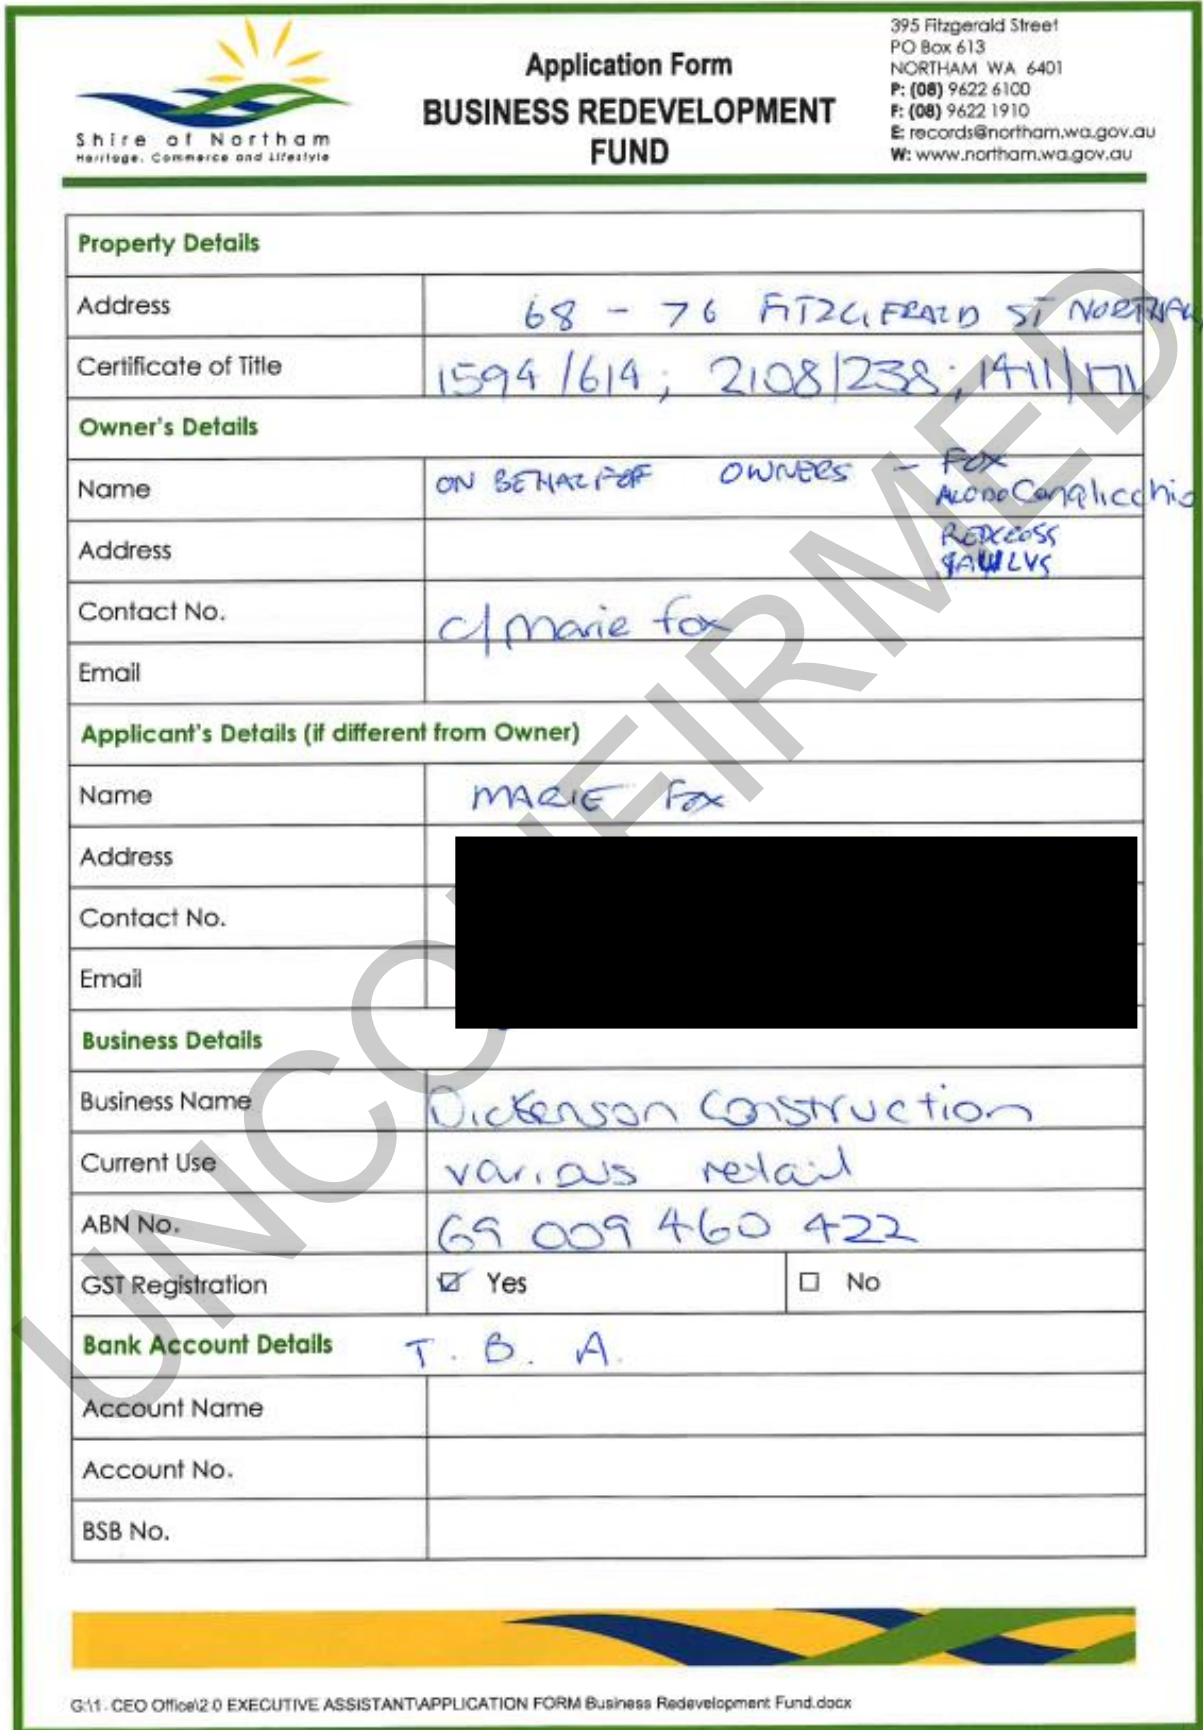 Shire of Northam
Heritage, Commerce and Lifestyle
Application Form
BUSINESS REDEVELOPMENT
FUND
395 Fitzgerald Street
PO Box 613
NORTHAM WA 6401
P: (08) 9622 6100
F: (08) 9622 1910
E: records@northam.wa.gov.au
W: www.northam.wa.gov.au
Property Details
Address 68 - 76 FITZGERALD ST NORTHAM
Certificate of Title 1594/614; 2108/238; 1411/171
Owner's Details
Name ON BEHALF OF OWNERS - FOX
Address REDCROSS
Contact No. c/ Marie Fox
Email
Applicant's Details (if different from Owner)
Name MARIE FOX
Address
Contact No.
Email
Business Details
Business Name Dickenson Construction
Current Use various retail
ABN No. 69 009 460 422
GST Registration ☑ Yes ☐ No
Bank Account Details T. B. A.
Account Name
Account No.
BSB No.
UNCONFIRMED
G:\1. CEO Office\2.0 EXECUTIVE ASSISTANT\APPLICATION FORM Business Redevelopment Fund.docx